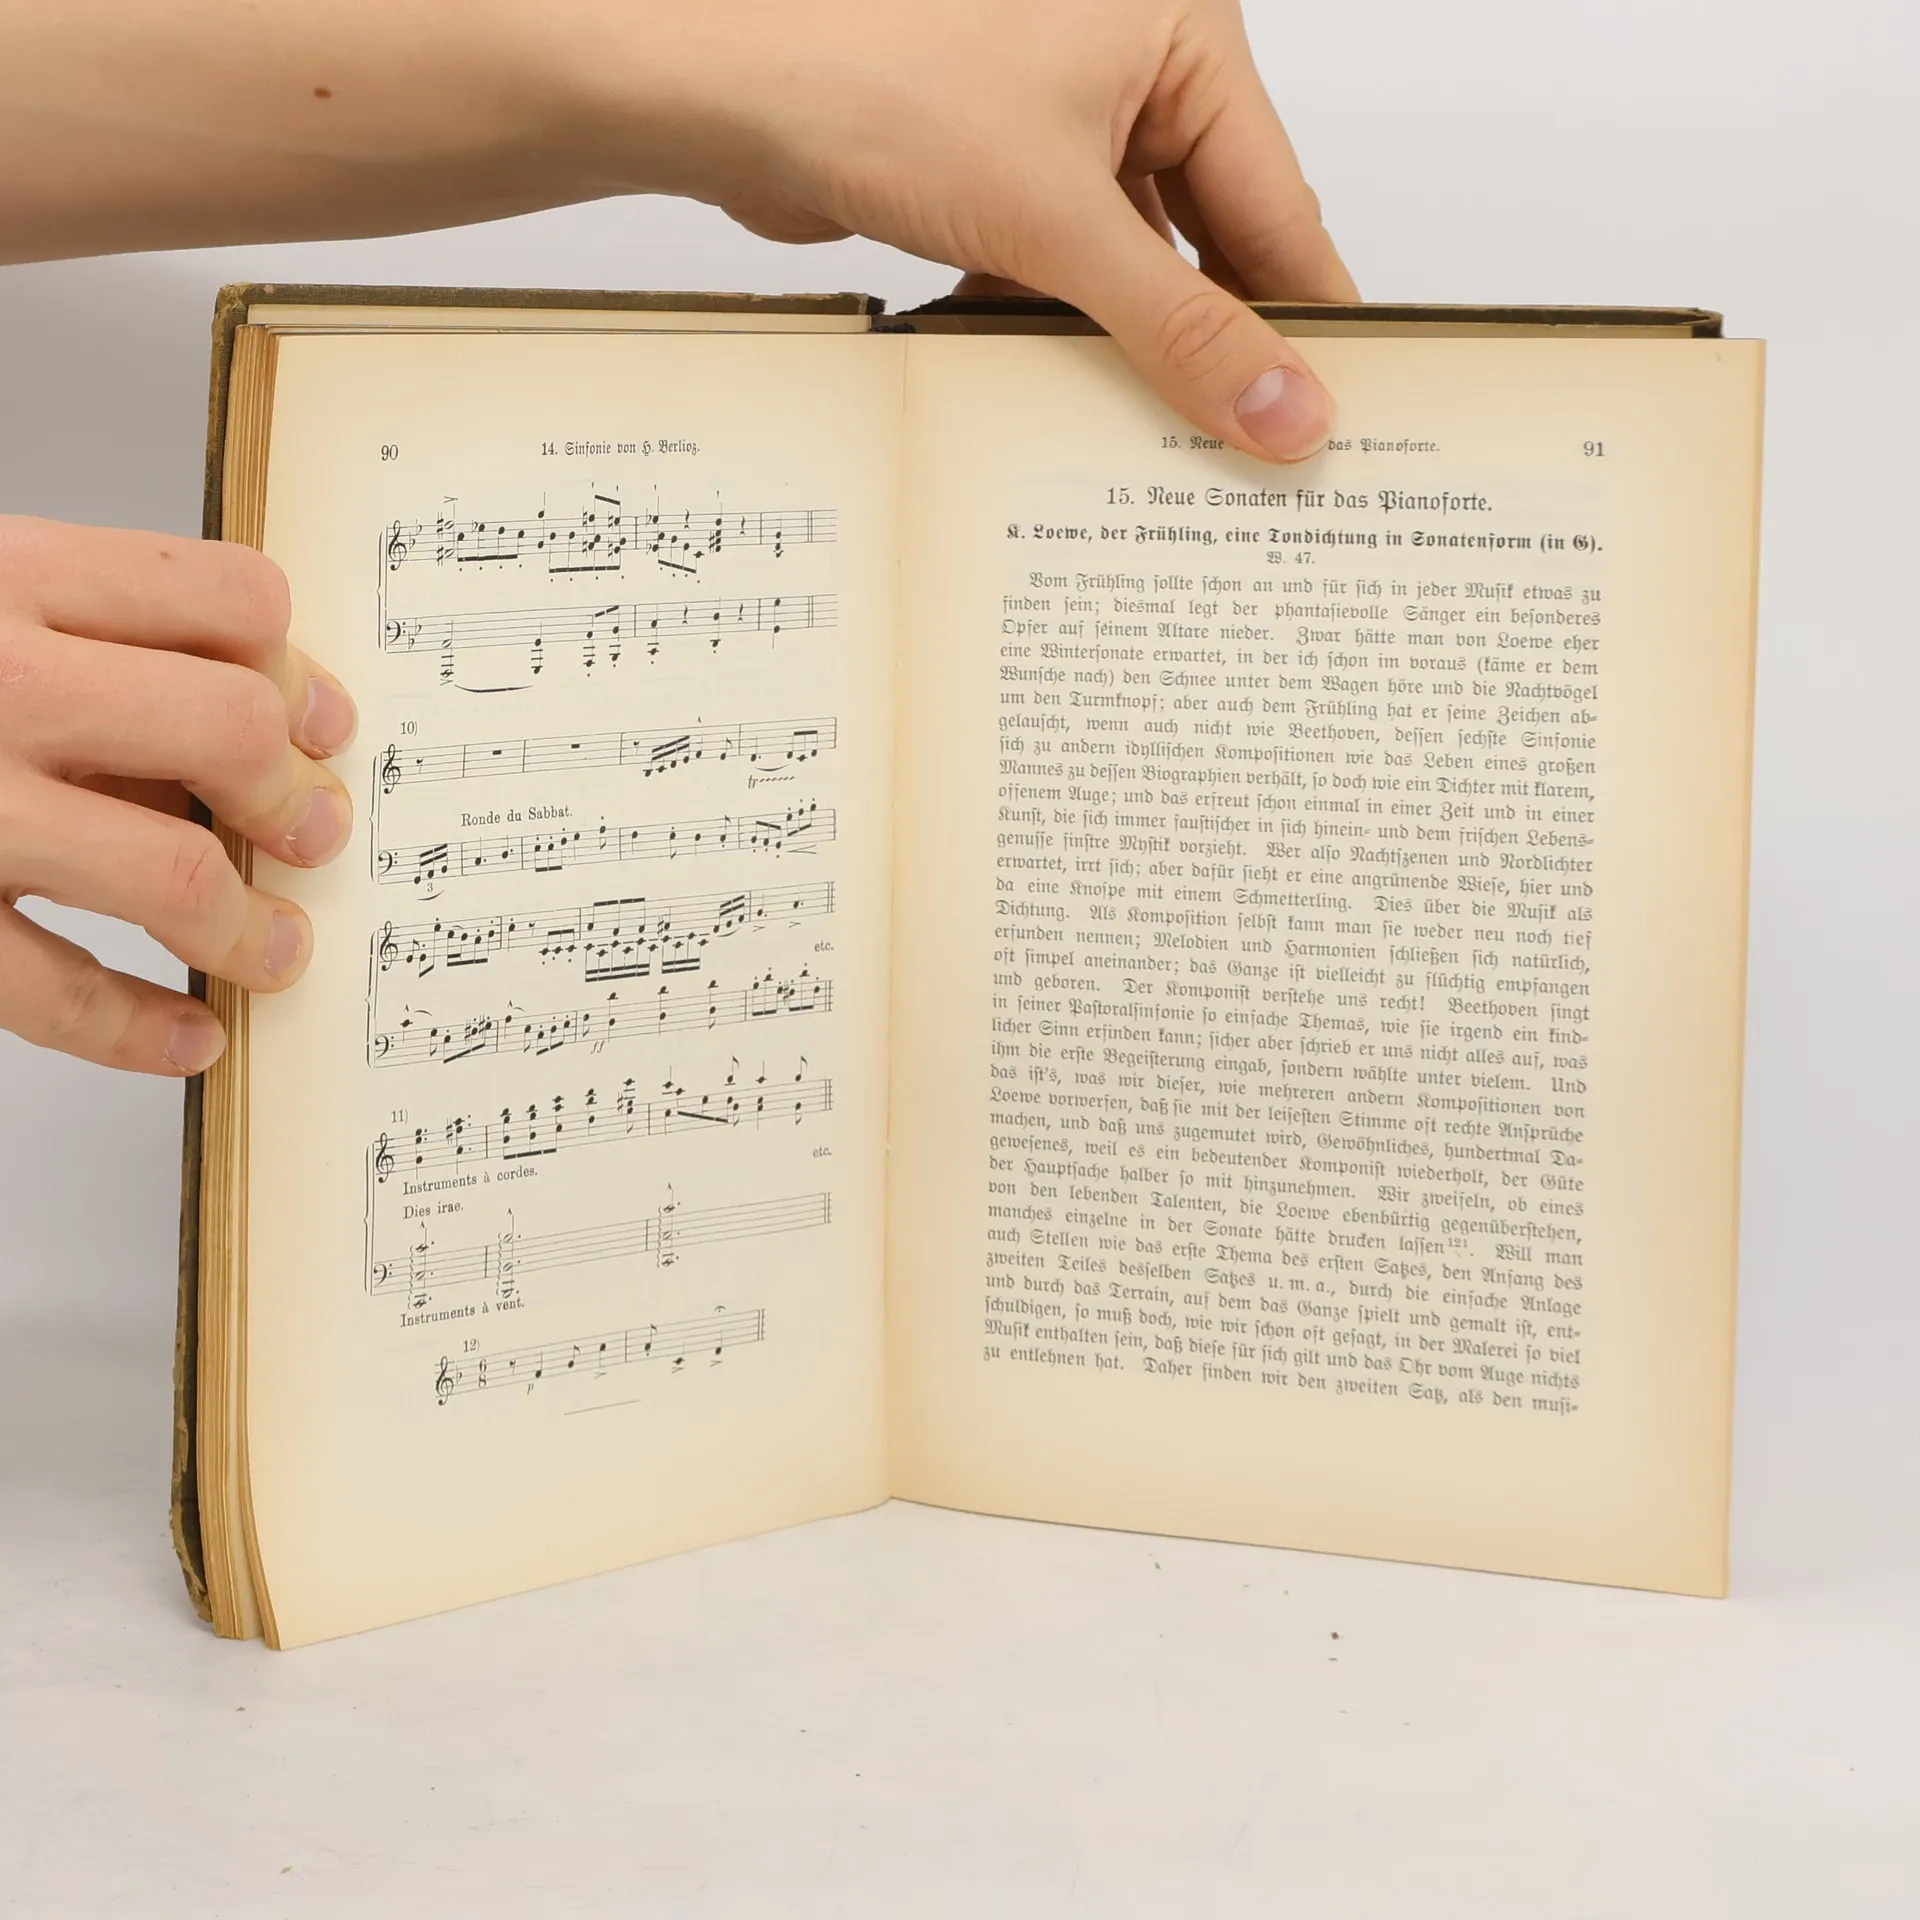 90
14. Sinfonie von H. Berlioz.
10)
Ronde du Sabbat.
3
etc.
ff
11)
etc.
Instruments à cordes.
Dies irae.
Instruments à vent.
12)
6
8
p
15. Neue das Pianoforte.
91
15. Neue Sonaten für das Pianoforte.
K. Loewe, der Frühling, eine Tondichtung in Sonatenform (in G).
W. 47.
Vom Frühling sollte schon an und für sich in jeder Musik etwas zu
finden sein; diesmal legt der phantasievolle Sänger ein besonderes
Opfer auf seinem Altare nieder. Zwar hätte man von Loewe eher
eine Wintersonate erwartet, in der ich schon im voraus (käme er dem
Wunsche nach) den Schnee unter dem Wagen höre und die Nachtvögel
um den Turmknopf; aber auch dem Frühling hat er seine Zeichen ab-
gelauscht, wenn auch nicht wie Beethoven, dessen sechste Sinfonie
sich zu andern idyllischen Kompositionen wie das Leben eines großen
Mannes zu dessen Biographien verhält, so doch wie ein Dichter mit klarem,
offenem Auge; und das erfreut schon einmal in einer Zeit und in einer
Kunst, die sich immer faustischer in sich hinein- und dem frischen Lebens-
genusse finstre Mystik vorzieht. Wer also Nachtszenen und Nordlichter
erwartet, irrt sich; aber dafür sieht er eine angrünende Wiese, hier und
da eine Knospe mit einem Schmetterling. Dies über die Musik als
Dichtung. Als Komposition selbst kann man sie weder neu noch tief
erfunden nennen; Melodien und Harmonien schließen sich natürlich,
oft simpel aneinander; das Ganze ist vielleicht zu flüchtig empfangen
und geboren. Der Komponist verstehe uns recht! Beethoven singt
in seiner Pastoralsinfonie so einfache Themas, wie sie irgend ein kind-
licher Sinn erfinden kann; sicher aber schrieb er uns nicht alles auf, was
ihm die erste Begeisterung eingab, sondern wählte unter vielem. Und
das ist's, was wir dieser, wie mehreren andern Kompositionen von
Loewe vorwerfen, daß sie mit der leisesten Stimme oft rechte Ansprüche
machen, und daß uns zugemutet wird, Gewöhnliches, hundertmal Da-
gewesenes, weil es ein bedeutender Komponist wiederholt, der Güte
der Hauptsache halber so mit hinzunehmen. Wir zweifeln, ob eines
von den lebenden Talenten, die Loewe ebenbürtig gegenüberstehen,
manches einzelne in der Sonate hätte drucken lassen¹²¹. Will man
auch Stellen wie das erste Thema des ersten Satzes, den Anfang des
zweiten Teiles desselben Satzes u. m. a., durch die einfache Anlage
und durch das Terrain, auf dem das Ganze spielt und gemalt ist, ent-
schuldigen, so muß doch, wie wir schon oft gesagt, in der Malerei so viel
Musik enthalten sein, daß diese für sich gilt und das Ohr vom Auge nichts
zu entlehnen hat. Daher finden wir den zweiten Satz, als den musi-